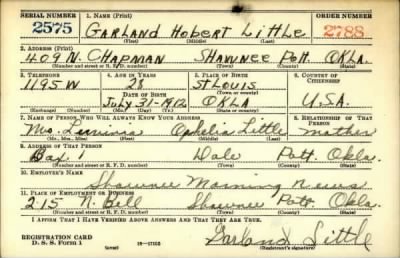 SERIAL NUMBER 1. NAME (Print) ORDER NUMBER
2575 GARLAND HOBERT LITTLE 2788
(First) (Middle) (Last)
2. ADDRESS (Print)
409 N. CHAPMAN SHAWNEE POTT. OKLA.
(Number and street or R. F. D. number) (Town) (County) (State)
3. TELEPHONE 4. AGE IN YEARS 5. PLACE OF BIRTH 6. COUNTRY OF CITIZENSHIP
1195 W 28 St Louis
DATE OF BIRTH (Town or county)
July-31-1912 OKLA U.S.A.
(Exchange) (Number) (Mo.) (Day) (Yr.) (State or country)
7. NAME OF PERSON WHO WILL ALWAYS KNOW YOUR ADDRESS 8. RELATIONSHIP OF THAT PERSON
Mrs. Ophelia Little mother
(Mr., Mrs., Miss) (First) (Middle) (Last)
9. ADDRESS OF THAT PERSON
Box Dale Pott. Okla.
(Number and street or R. F. D. number) (Town) (County) (State)
10. EMPLOYER'S NAME
Shawnee Morning News
11. PLACE OF EMPLOYMENT OR BUSINESS
215 N. Bell Shawnee Pott. Okla.
(Number and street or R. F. D. number) (Town) (County) (State)
I AFFIRM THAT I HAVE VERIFIED ABOVE ANSWERS AND THAT THEY ARE TRUE.
REGISTRATION CARD
D. S. S. Form 1 Garland Little
(Registrant's signature)